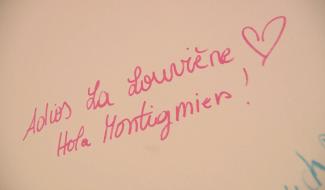 Adios La Louvière
Hola Montigmiers !